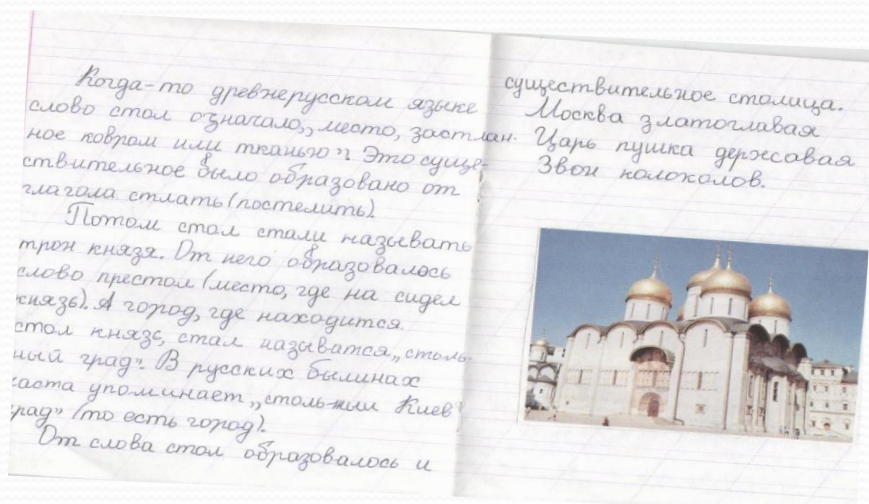 Когда-то древнерусском языке
слово стол означало,, место, застлан-
ное ковром или тканью". Это суще-
ствительное было образовано от
глагола стлать (постелить).
Потом стол стали называть
трон князя. От него образовалось
слово престол (место, где на сидел
князь). А город, где находится
стол князс, стал называтся ,,столь-
ный град". В русских былинах
часта упоминает ,,столь-ный Киев
град" (то есть город).
От слова стол образовалось и
существительное столица.
Москва златоглавая
Царь пушка державая
Звон колоколов.